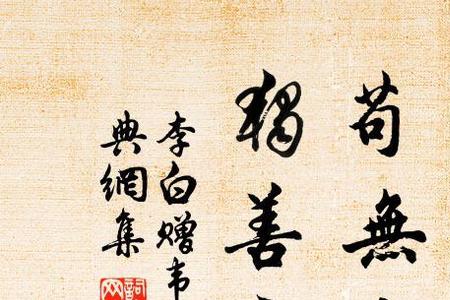 苟無
獨善
李白赠韦
典網集